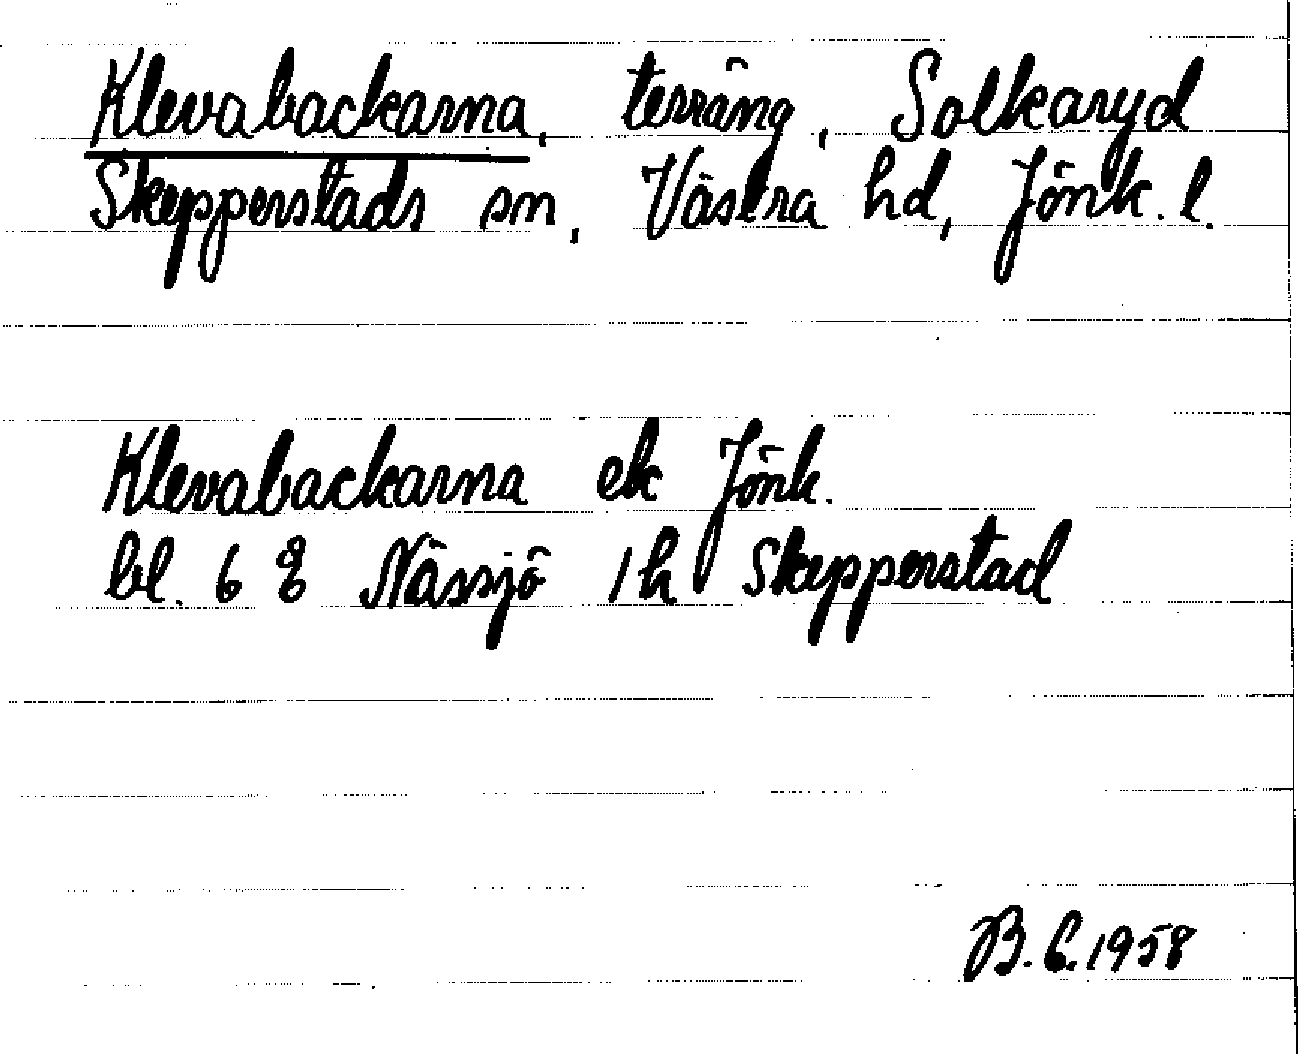 Klevabackarna, terräng, Solkaryd
Skepperstads sn, Västra hd, Jönk. l.
Klevabackarna ek Jönk.
bl. 6 E Nässjö 1h Skepperstad
B.C. 1958